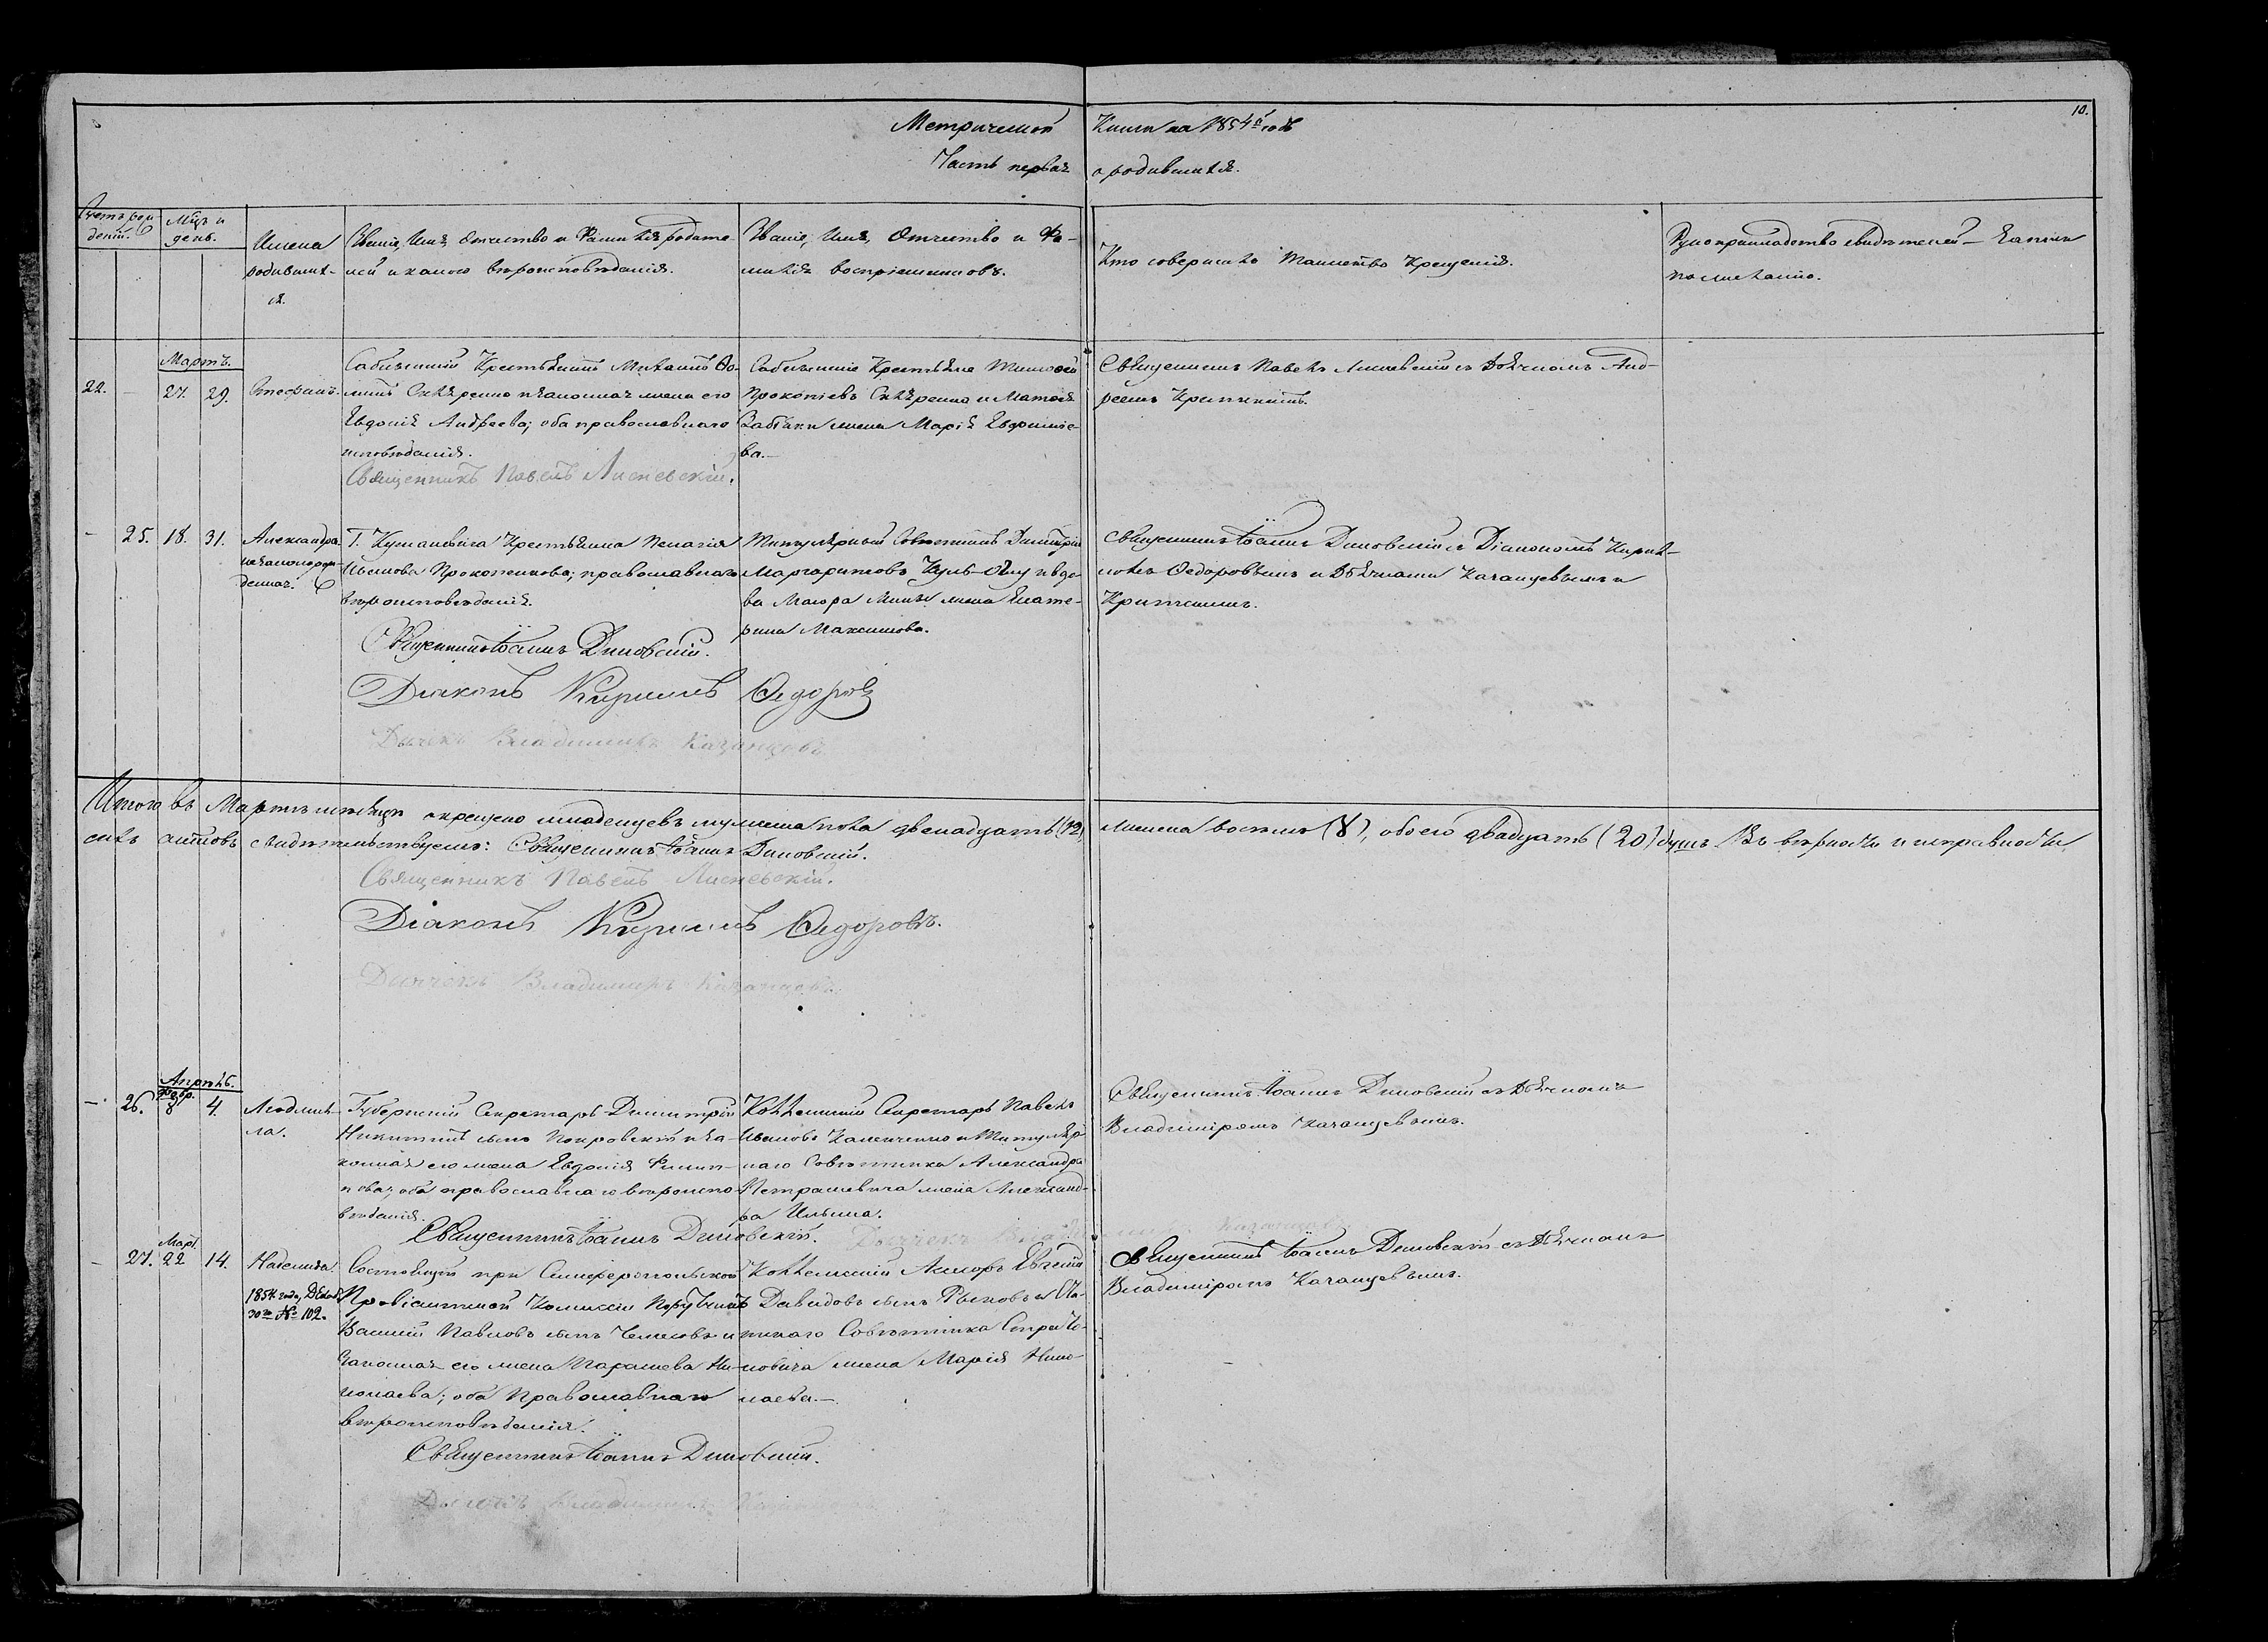 10.
Метрической Книги на 1854й годъ
Часть первая о родившихся.
Счетъ рож-
деній.
Мѣцъ и
день.
Имена
родивших-
ся.
Званіе, Имя, Отчество и Фамилія родите-
лей и какого вѣроисповѣданія.
Званіе, Имя, Отчество и Фа-
милія воспріемниковъ.
Кто совершалъ Таинство Крещенія.
Рукоприкладство свидѣтелей
по желанію.
Мартъ.
22. - 27. 29. Стефанъ.
Крестьянинъ Михаилъ Ѳо-
минъ Скляренко и законная жена его
Евдокія Андреева; оба православнаго
исповѣданія.
Священникъ Павелъ Лисневскій.
Крестьяне Тимофей
Прокопіевъ Скляренко и Матвѣя
жена Марія Ефиміе-
ва.-
Священникъ Павелъ Лисневскій съ Дьячкомъ Анд-
реемъ
- 25. 18. 31. Александра.
незаконорож-
денная.
Г. Крестьянка Пелагія
православнаго
вѣроисповѣданія.
Священникъ Іоаннъ Диковскій.
Діаконъ Кириллъ Ѳедоровъ
Дьячекъ Владимиръ Казанцевъ
Титулярный Совѣтникъ Димитрій
Маргаритовъ и вдо-
ва Маіора жена Екате-
рина Максимова.
Священникъ Іоаннъ Диковскій съ Діакономъ Кирил-
ломъ Ѳедоровымъ и Дьячками Казанцевымъ и
Итого въ Мартѣ мѣсяцѣ окрещено младенцевъ мужеска пола двенадцать (12), женска восемь (8), обоего двадцать (20) душъ. Въ вѣрности и исправности
сихъ актовъ свидѣтельствуемъ: Священникъ Іоаннъ Диковскій.
Священникъ Павелъ Лисневскій.
Діаконъ Кириллъ Ѳедоровъ.
Дьячекъ Владимиръ Казанцевъ.
Апрѣль.
- 26. 8 4. Людми-
ла.
Губернскій Секретарь Димитрій
Никитинъ сынъ Покровскій и за-
конная его жена Евдокія Филип-
пова; оба православнаго вѣроиспо-
вѣданія.
Священникъ Іоаннъ Диковскій.
Коллежскій Секретарь Павелъ
Ивановъ и Титуляр-
наго Совѣтника Александра
Петрашевича жена Александ-
ра Ильина.
Священникъ Іоаннъ Диковскій съ Дьячкомъ
Владиміромъ Казанцевымъ.
Март.
- 27. 22 14. Надежда.
1854 года, Декаб.
30го № 102.
Состоящій при Симферопольской
Провіантской Комиссіи Поручикъ
Василій Павловъ сынъ и
законная его жена Параскева Ни-
колаева; оба Православнаго
вѣроисповѣданія.
Священникъ Іоаннъ Диковскій.
Коллежскій Асесоръ Евгеній
Давидовъ сынъ Рыковъ и Ста-
тскаго Совѣтника
жена Марія Нико-
лаева.-
Священникъ Іоаннъ Диковскій съ Дьячкомъ
Владиміромъ Казанцевымъ.